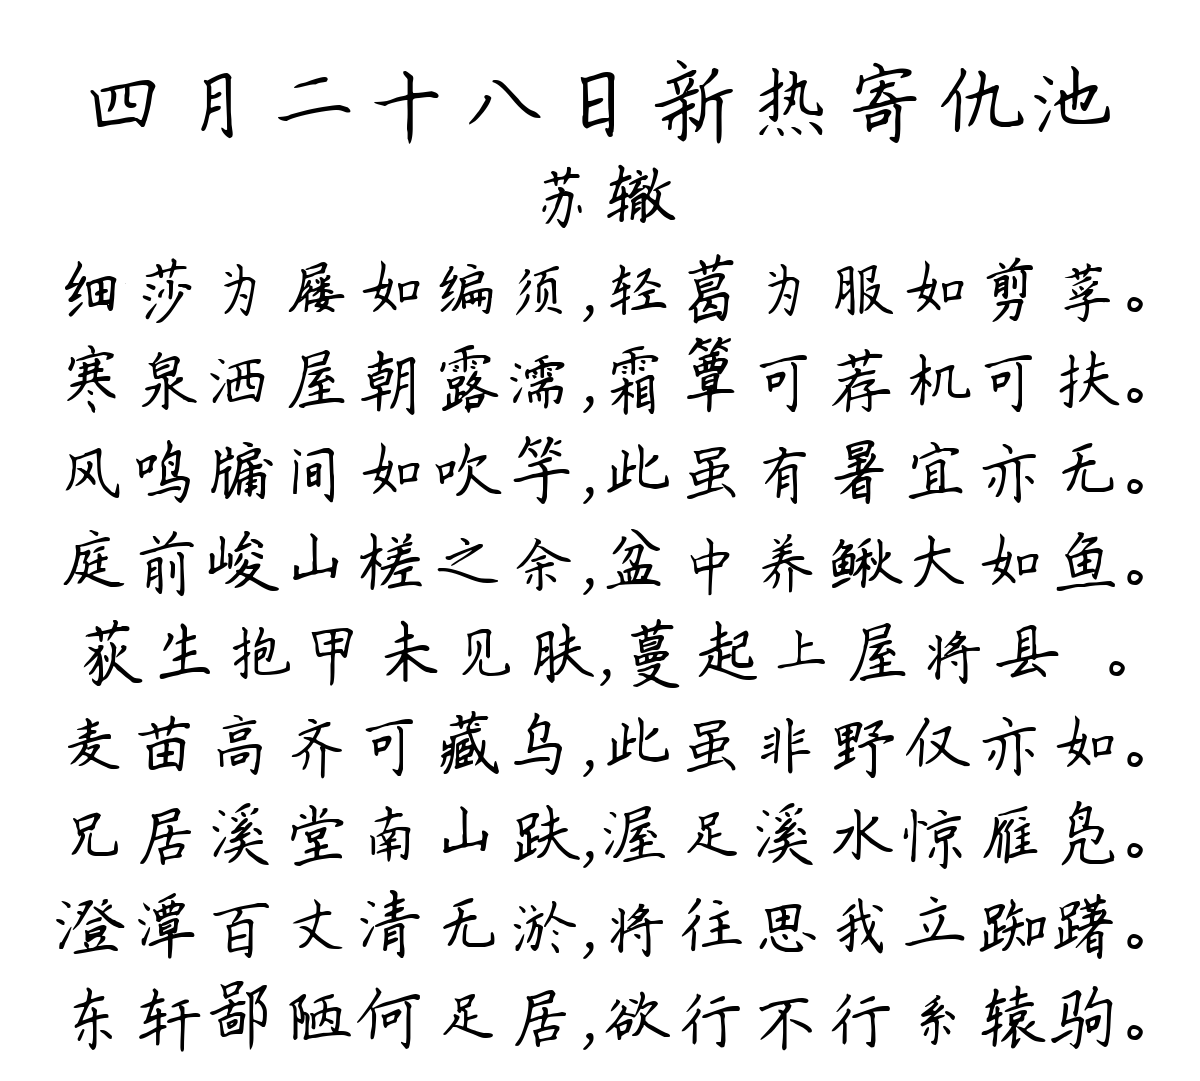 四月二十八日新热寄仇池
苏辙
细莎为屦如编须,轻葛为服如剪莩。
寒泉洒屋朝露濡,霜簟可荐机可扶。
风鸣牖间如吹竽,此虽有暑宜亦无。
庭前峻山槎之余,盆中养鳅大如鱼。
荻生抱甲未见肤,蔓起上屋将县 。
麦苗高齐可藏乌,此虽非野仅亦如。
兄居溪堂南山趺,渥足溪水惊雁凫。
澄潭百丈清无淤,将往思我立踟躇。
东轩鄙陋何足居,欲行不行系辕驹。